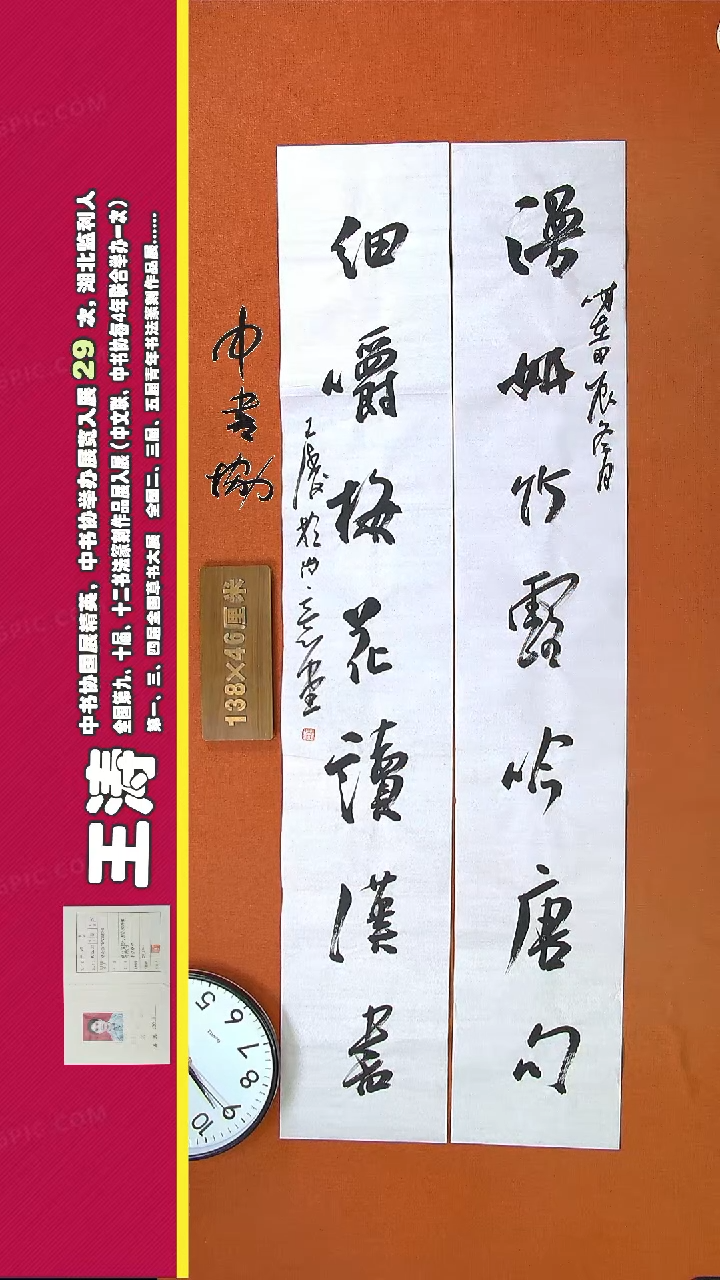 漫研竹露吟唐句
时在甲辰冬月
细嚼梅花读汉书
王涛于
中书协
138×46厘米
王涛
中书协国展精英，中书协举办展览入展29次，湖北监利人
全国第九、十届、十二书法篆刻作品展入展（中文联、中书协每4年联合举办一次）
第一、三、四届全国草书大展 全国二、三届、五届青年书法篆刻作品展……
5
6
7
8
9
10